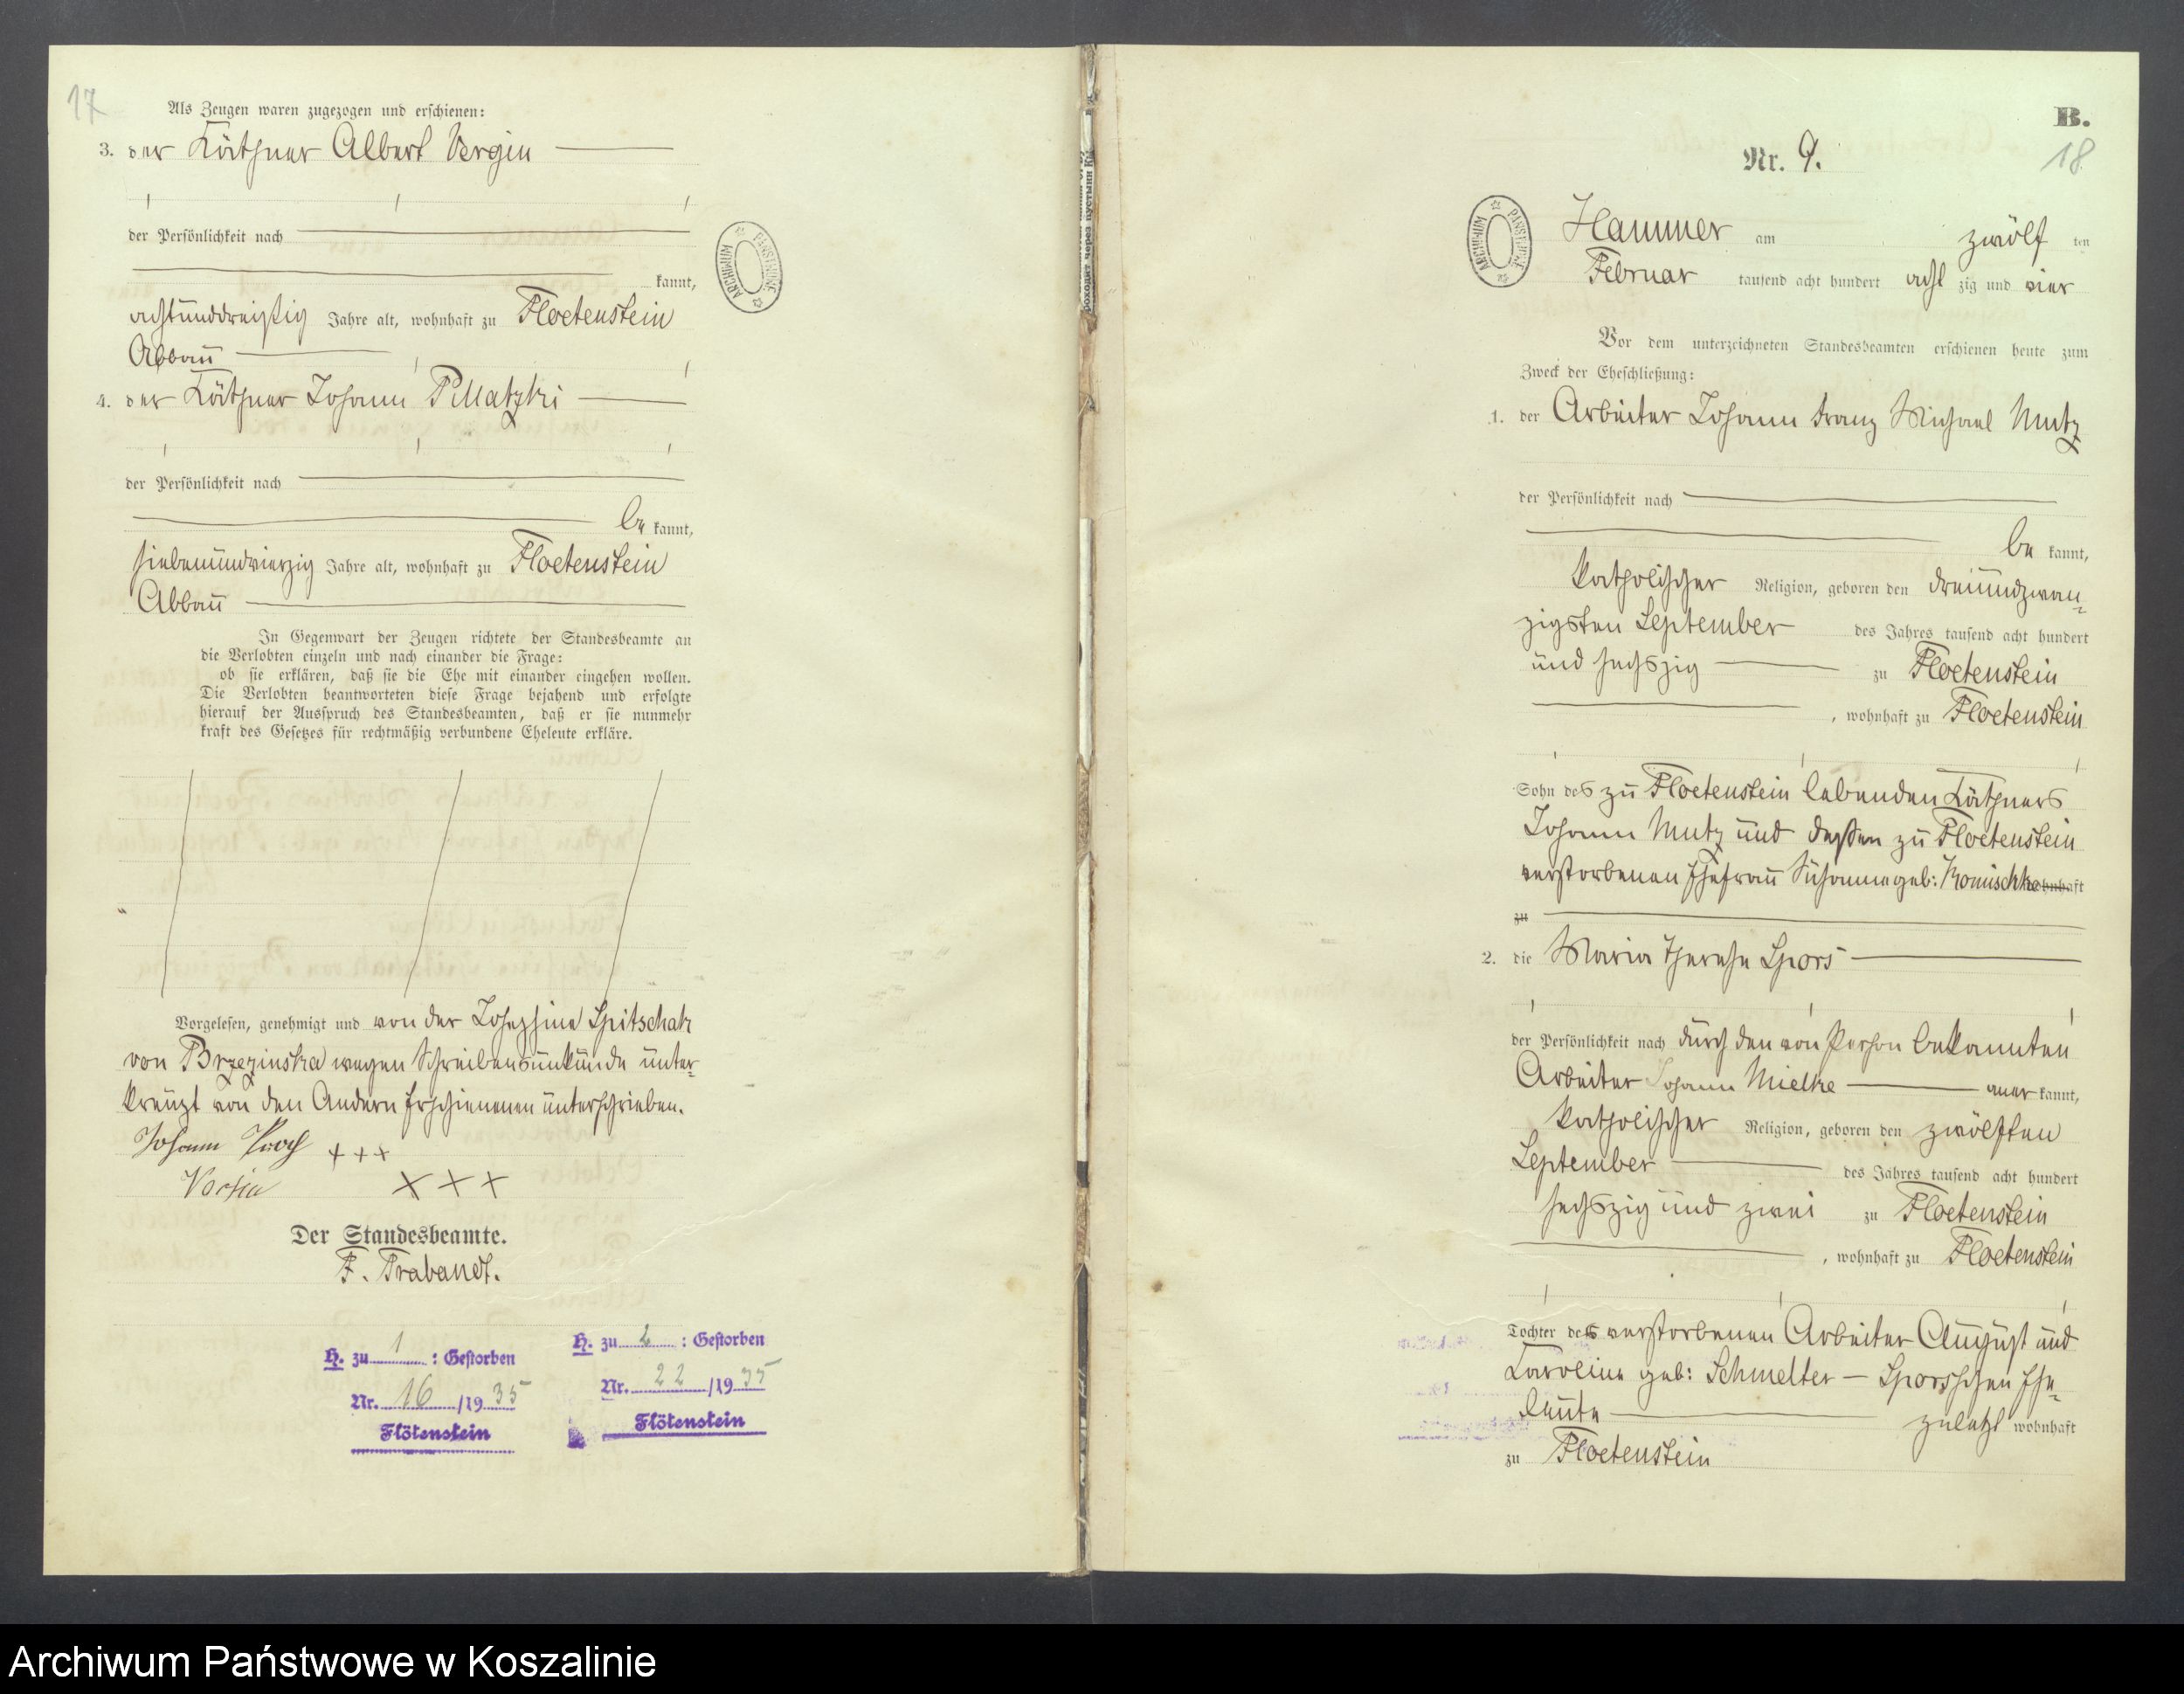 17
Als Zeugen waren zugezogen und erschienen:
3. der Käthner Albert Vergin
der Persönlichkeit nach
kannt,
achtunddreißig Jahre alt, wohnhaft zu Floetenstein
Abbau
4. der Käthner Johann Pillatzki
der Persönlichkeit nach
be kannt,
siebenundvierzig Jahre alt, wohnhaft zu Floetenstein
Abbau
In Gegenwart der Zeugen richtete der Standesbeamte an
die Verlobten einzeln und nach einander die Frage:
ob sie erklären, daß sie die Ehe mit einander eingehen wollen.
Die Verlobten beantworteten diese Frage bejahend und erfolgte
hierauf der Ausspruch des Standesbeamten, daß er sie nunmehr
kraft des Gesetzes für rechtmäßig verbundene Eheleute erkläre.
Vorgelesen, genehmigt und von der Josephine Spitschak
von Brzezinska wegen Schreibensunkunde unter-
kreuzt von den Andern Erschienenen unterschrieben.
Johann +++
+++
Der Standesbeamte.
F. Trabandt.
H. zu 1 : Gestorben
Nr. 16 /19 35
Flötenstein
H. zu 2 : Gestorben
Nr. 22 /19 35
Flötenstein
ARCHIWUM PAŃSTWOWE
B.
18
Nr. 9.
ARCHIWUM PAŃSTWOWE
Hammer am zwölf ten
Februar tausend acht hundert acht zig und vier
Vor dem unterzeichneten Standesbeamten erschienen heute zum
Zweck der Eheschließung:
1. der Arbeiter Johann Franz Michael Mutz
der Persönlichkeit nach
be kannt,
katholischer Religion, geboren den dreiundzwan-
zigsten September des Jahres tausend acht hundert
und sechszig zu Floetenstein
, wohnhaft zu Floetenstein
Sohn des zu Floetenstein lebenden Käthners
Johann Mutz und dessen zu Floetenstein
verstorbenen Ehefrau Susanna geb: wohnhaft
zu
2. die Maria Therese Spors
der Persönlichkeit nach durch den von Person bekannten
Arbeiter Johann Mielke aner kannt,
katholischer Religion, geboren den zwölften
September des Jahres tausend acht hundert
sechszig und zwei zu Floetenstein
, wohnhaft zu Floetenstein
Tochter des verstorbenen Arbeiter August und
Karoline geb: Schmelter – Sporsschen Ehe-
leute zuletzt wohnhaft
zu Floetenstein
Archiwum Państwowe w Koszalinie